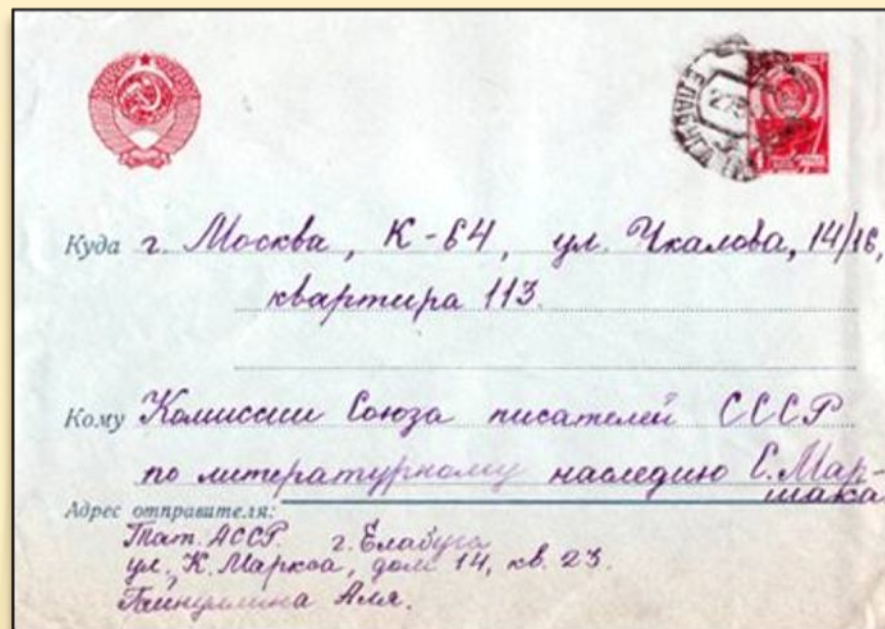 ЕЛАБУГА
Куда г. Москва, К-64, ул. Чкалова, 14/16,
квартира 113.
Кому Комиссии Союза писателей СССР
по литературному наследию С. Мар-
шака
Адрес отправителя:
Тат. АССР. г. Елабуга
ул. К. Маркса, дом 14, кв. 23.
Гайнуллина Аля.